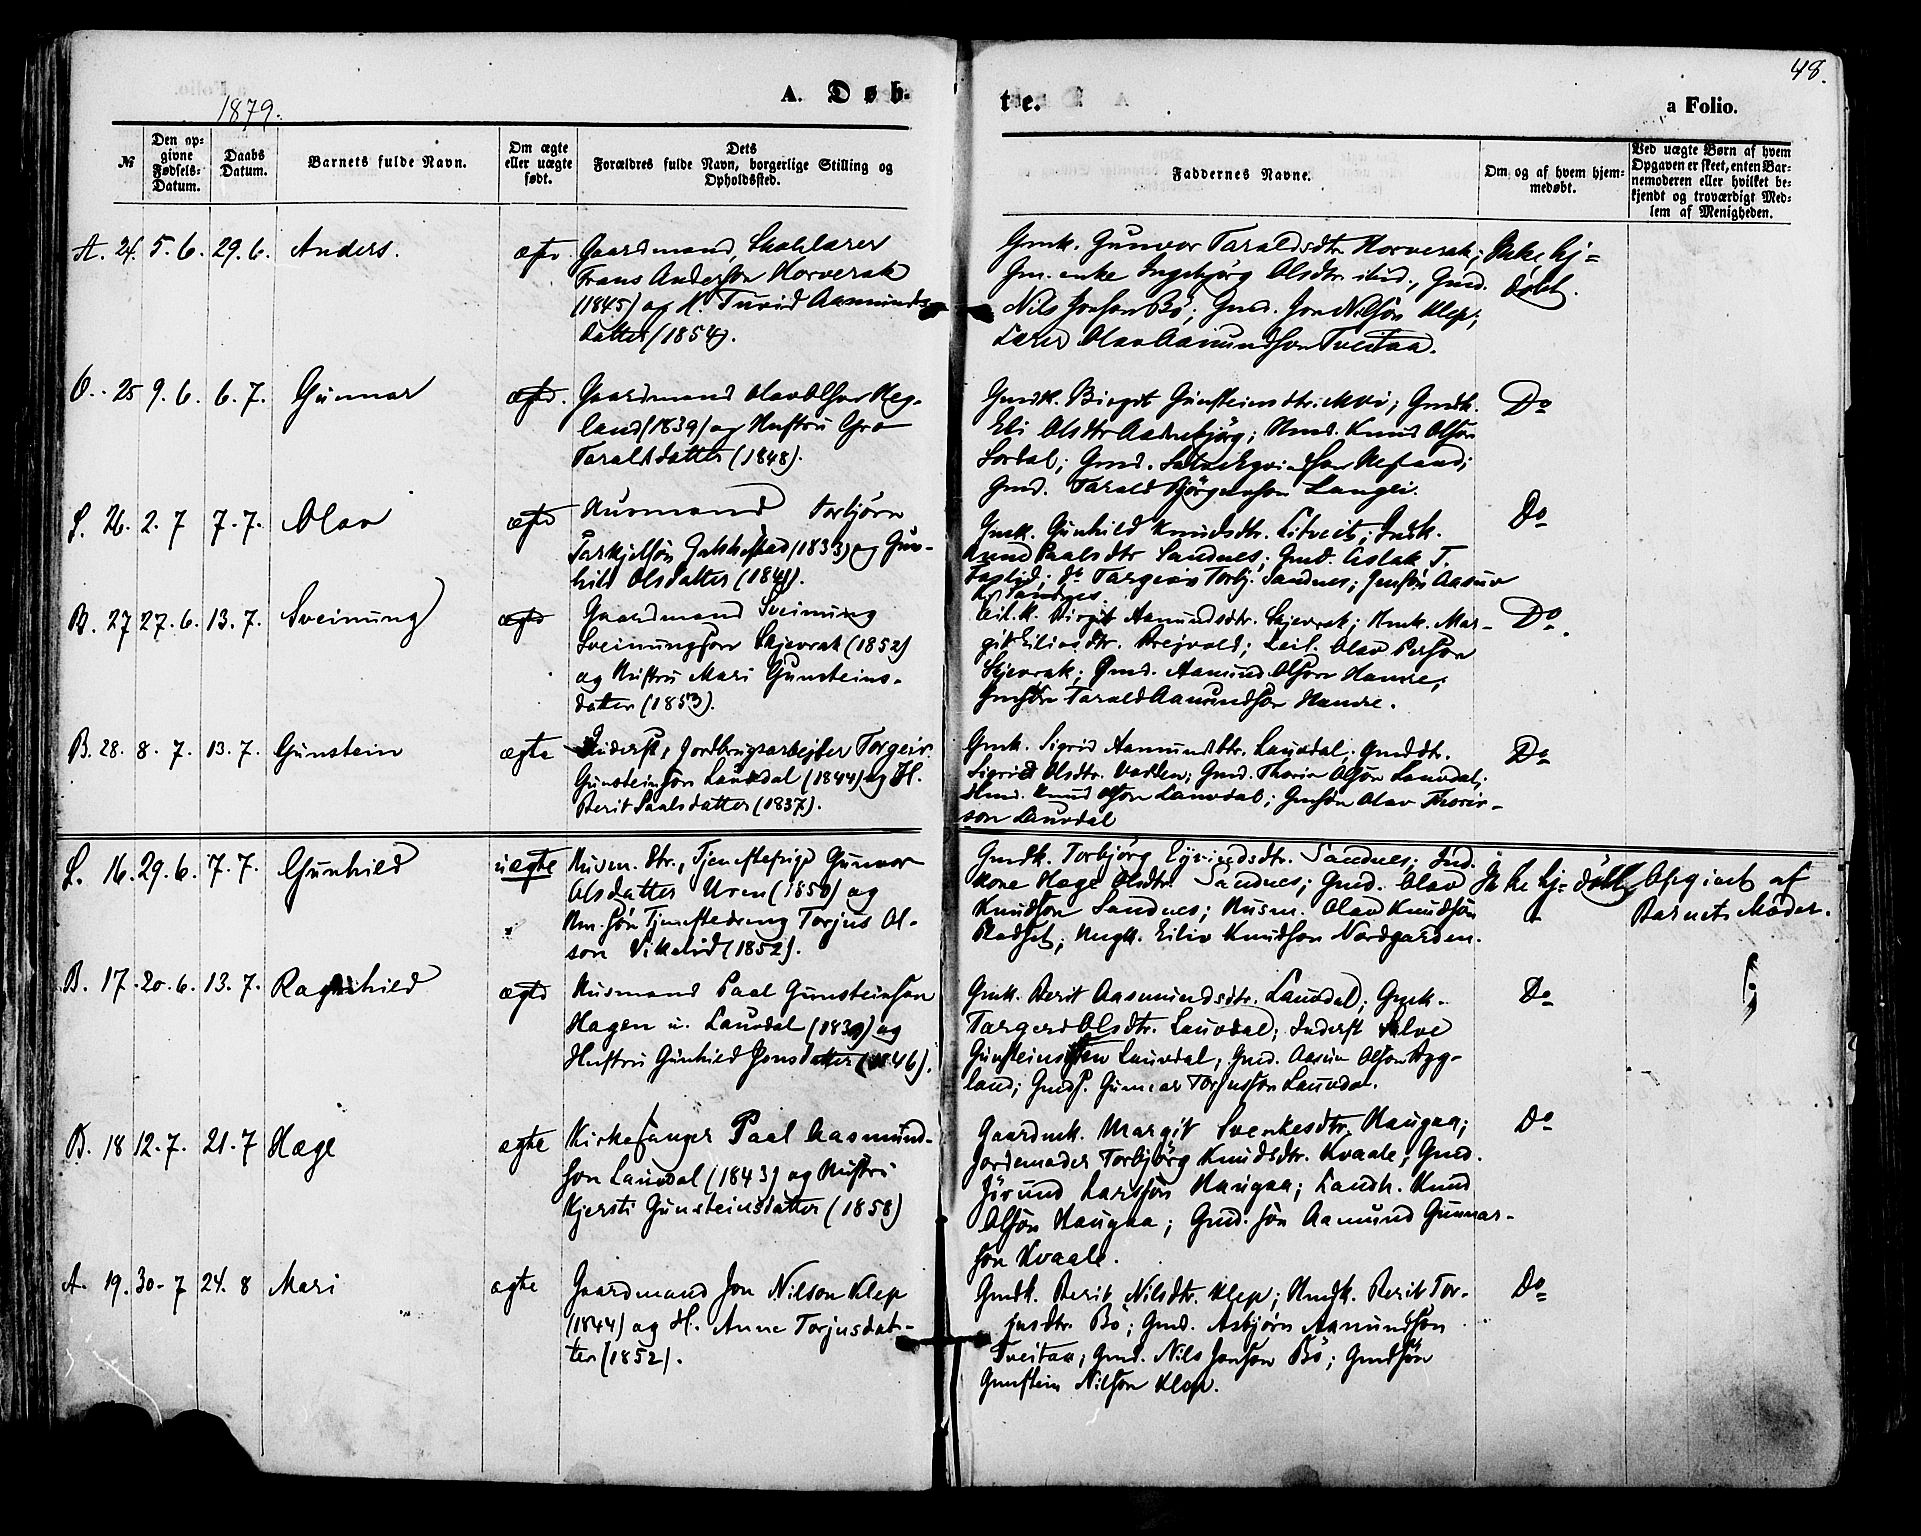 48.
1879.
A. Døb-
te.
a Folio.
№
Den op-
givne
Fødsels-
Datum.
Daabs
Datum.
Barnets fulde Navn.
Om ægte
eller uægte
født.
Dets
Forældres fulde Navn, borgerlige Stilling og
Opholdssted.
Faddernes Navne.
Om og af hvem hjem-
medøbt.
Ved uægte Børn af hvem
Opgaven er skeet, enten Bar-
nemoderen eller hvilket be-
kjendt og troværdigt Med-
lem af Menigheden.
A. 24. 5. 6. 29. 6. Anders. ægte
Gaardmand, Skolelærer
Frans Anderssøn Horverak
(1845) og H. Turid Aamunds-
datter (1854).
Gmk. Gunvor Taraldsdtr. Horverak;
Gm. enke Ingebjørg Olsdtr. ibid., Gmd.
Nils Jonson Bö; Gmd. Jon Nilsön Klep;
Lærer Olav Aamundson Tveitaa.
Ikke hj=
døbt.
25 9. 6. 6. 7. Gunnar ægte.
Gaardmand Olav Olson Reg-
land (1839) og Hustru Gro
Taraldsdatter (1848).
Gmdk. Birgit Günsteinsdtr. Moi; Gmdk.
Eli Olsdtr. ; Hmd. Knud Olsön
; Gmd.
Gmd. Tarald Björgenson Langei.
Do
L. 26. 2. 7 7. 7. Olav ægte
Husmand Torbjörn
Tarkjelsön (1833) og Gun-
hild Olsdatter (1841).
Gmk. Gunhild Knudsdtr. Litveit; Indk.
Paalsdtr. Sandnes; Gmd. Aslak T.
; do Targeiv Torbj. Sandnes; Gmsön Aasuv
K. Sandnes.
Do
B. 27 27. 6. 13. 7. Sveinung ægte
Gaardmand Sveinung
Sveinungson Skjevrak (1852)
og Hustru Mari Gunsteins-
datter (1853).
Leil. k. Birgit Aamundsdtr. Skjevrak; Hmk. Mar-
git Eilivsdtr. Breivold; Leil. Olav Person
Skjevrak; Gmd. Aamund Olson Hamre;
Gmsön Tarald Aamundson Hamre.
Do.
B. 28. 8. 7. 13. 7. Gunstein ægte
Inderst, Jordbrugsarbejder Torgeir
Gunsteinsön Lauvdal (1844) og H.
Berit Paalsdatter (1837).
Gmk. Sigrid Aamundsdtr. Lauvdal; Gmddtr.
Sigrid Olsdtr. ; Gmd. Thorir Olsön Lauvdal;
Hmd. Knud Olson Lauvdal; Gmsön Olav Thorir-
son Lauvdal
Do
L. 16. 29. 6. 7. 7. Gunhild uægte
Husm. dtr., Tjenestepige Gunvor
Olsdatter Uren (1850) og
Hm. sön Tjenestedreng Torjus Ol-
son Vikelid (1852).
Gmdk. Torbjörg Eyvindsdtr. Sandnes; Ind.
kone Hæge Olsdtr. Sandnes; Gmd. Olav
Knudson Sandnes; Husm. Olav Knudsön
Pladset; Ungk. Eiliv Knudson Nordgarden.
Ikke hj=døbt
Opgivet af
Barnets Moder.
B. 17. 20. 6. 13. 7. Ragnhild ægte
Husmand Paal Gunsteinson
Hagen u. Lauvdal (1839) og
Hustru Gunhild Jonsdatter (1846).
Gmk. Berit Aasmundsdtr. Lauvdal; Gmk.
Targerd Olsdtr. Lauvdal; Inderst Salve
Günsteinson Lauvdal; Gmd. Aasuv Olson Ryg-
land; Gmds. Gunnar Torjusson Lauvdal.
Do
B. 18 12. 7. 21. 7 Hæge ægte
Kirkesanger Paal Aasmund-
son Lauvdal (1843) og Hustru
Kjersti Gunsteinsdatter (1858)
Gaardmk. Margit Sverkesdtr. Haugaa;
Jordemoder Torbjörg Knudsdtr. Kvaale; Gmd.
Jörund Larsson Haugaa; Landh. Knud
Olsön Haugaa; Gmd. sön Aamund Gunnar-
son Kvaale.
Do
A. 19. 30. 7 24. 8 Mari ægte
Gaardmand Jon Nilson Klep
(1844) og H. Anne Torjusdat-
ter (1852).
Gmdk. Berit Nilsdtr. Klep; Hmdk. Berit Tor-
jusdtr. Bö; Gmd. Asbjörn Aamundson
Tveitaa; Gmd. Nils Jonson Bö; Gmdsön
Gunstein Nilson Klep.
Do